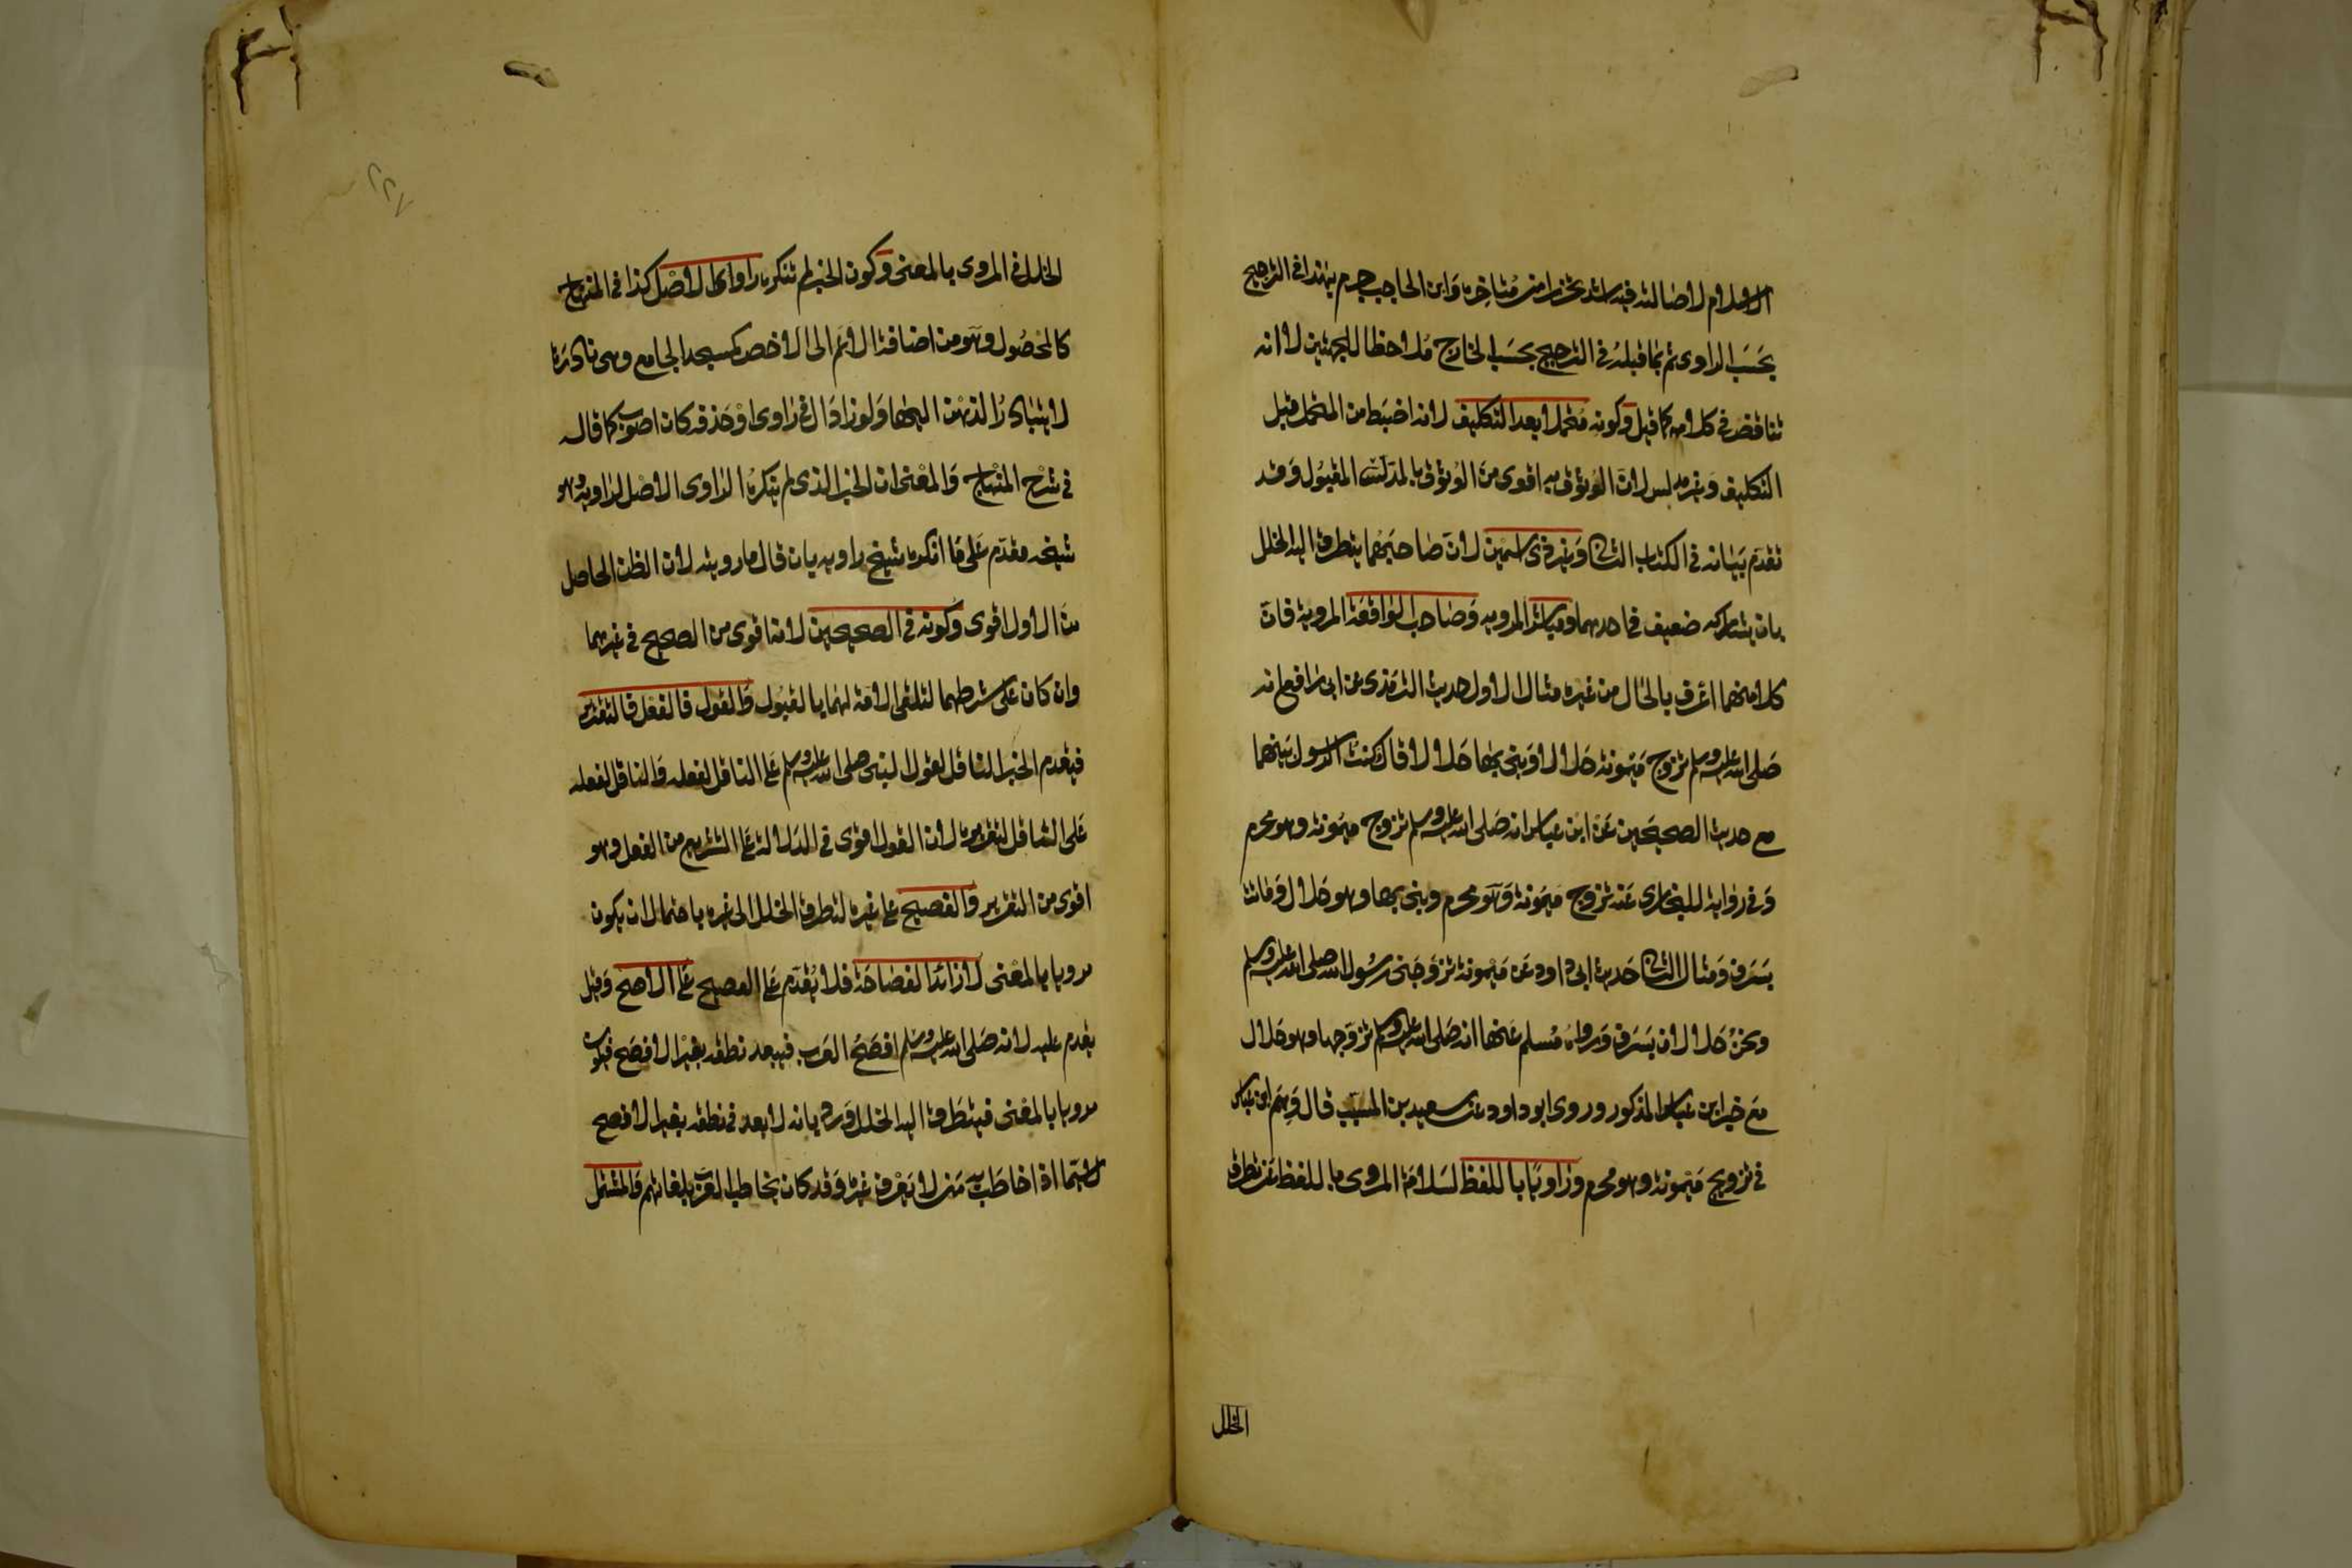 الاسلام لاصالته فيه اشد تحرزا من متاخره وابن الحاجب جزم بهذا في الترجيح
بحسب الراوي ثم بما قبله في الترجيح بحسب الخارج ملاحظا للجهتين لا انه
تناقض في كلامه كما قيل وكونه متحملا بعد التكليف لانه اضبط من المتحمل قبل
التكليف وغير مدلس لان الوثوق به اقوى من الوثوق بالمدلس المقبول وقد
تقدم بيانه في الكتاب الثاني وغير ذي اسمين لان صاحبهما يتطرق اليه الخلل
بان يشاركه ضعيف في احدهما ومباشر المرويه وصاحب الواقعة المروية فان
كلا منهما اعرف بالحال من غيره مثال الاول حديث الترمذي عن ابي رافع انه
صلى الله عليه وسلم تزوج ميمونة حلالا وبنى بها حلالا قال كنت الرسول بينهما
مع حديث الصحيحين عن ابن عباس انه صلى الله عليه وسلم تزوج ميمونة وهو محرم
وفي رواية للبخاري عنه تزوج ميمونة وهو محرم وبنى بها وهو حلال وماتت
بسرف ومثال الثاني حديث ابي داود عن ميمونة تزوجني رسول الله صلى الله عليه وسلم
ونحن حلالان بسرف ورواه مسلم عنها انه صلى الله عليه وسلم تزوجها وهو حلال
مع خبر ابن عباس المذكور وروى ابو داود عن سعيد بن المسيب قال وهم ابن عباس
في تزويج ميمونة وهو محرم وراويا باللفظ لسلامة المروي باللفظ عن تطرق
الخلل
الخلل في المروي بالمعنى وكون الخبر لم ينكره راوي الاصل كذا في المنهاج
كالمحصول وهو من اضافة الاعم الى الاخص كمسجد الجامع وهي نادرة
لا يتبادر الذهن اليها ولو زاد ال في راوي او حذفه كان اصوب كما قال
في شرح المنهاج والمعنى ان الخبر الذي لم ينكره الراوي الاصل لراويه وهو
شيخه مقدم على ما انكره شيخ راويه بان قال ما رويته لان الظن الحاصل
من الاول اقوى وكونه في الصحيحين لانه اقوى من الصحيح في غيرهما
وان كان على شرطهما لتلقي الامة لهما بالقبول والقول فالفعل فالتقرير
فيقدم الخبر الناقل لقول النبي صلى الله عليه وسلم على الناقل لفعله والناقل لفعله
على الناقل لتقريره لان القول اقوى في الدلالة على التشريع من الفعل وهو
اقوى من التقرير والفصيح على غيره لتطرق الخلل الى غيره باحتمال ان يكون
مرويا بالمعنى لا زائد الفصاحة فلا يقدم على الفصيح على الاصح وقيل
يقدم عليه لانه صلى الله عليه وسلم افصح العرب فيبعد نطقه بغير الافصح فيكون
مرويا بالمعنى فيتطرق اليه الخلل ورد بانه لا بعد في نطقه بغير الافصح
لا سيما اذا خاطب به من لا يعرف غيره وقد كان يخاطب العرب بلغاتهم والمشتمل